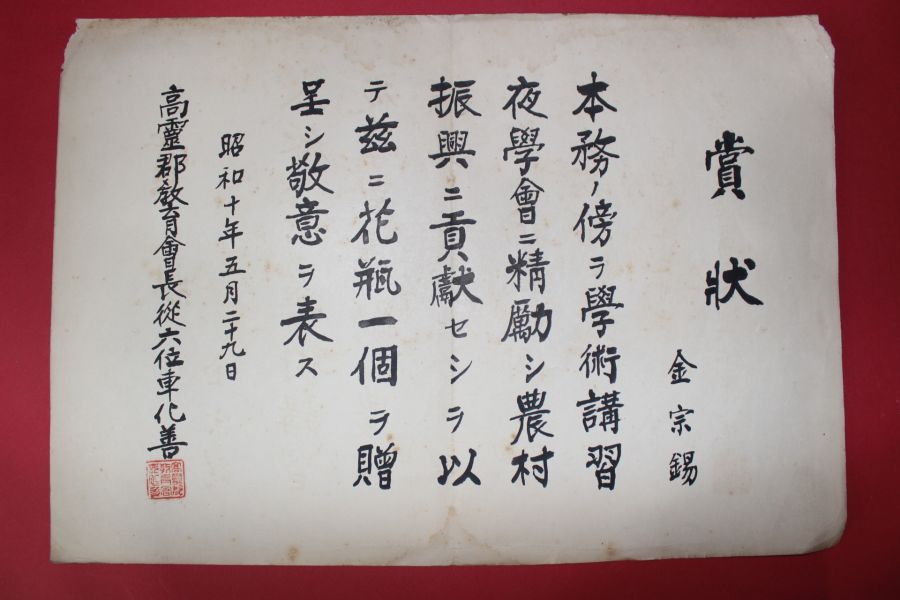 賞狀
金宗錫
本務ノ傍ラ學術講習
夜學會ニ精勵シ農村
振興ニ貢獻セシヲ以
テ茲ニ花瓶一個ヲ贈
呈シ敬意ヲ表ス
昭和十年五月二十九日
高靈郡敎育會長從六位車化善